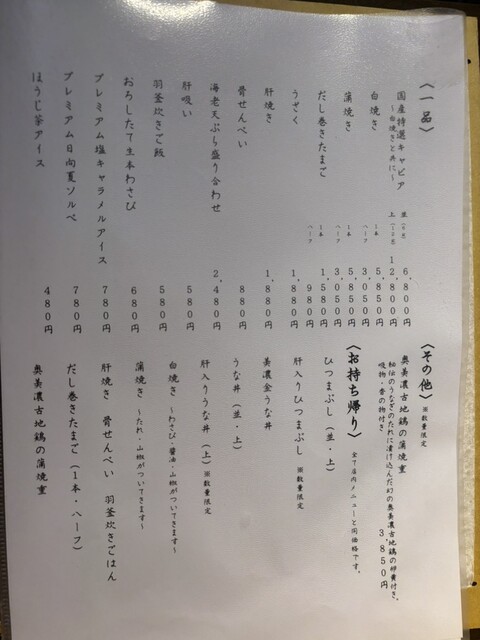 〈一品〉
国産特選キャビア
～白焼きと共に～
並（10g） 6,800円
上（20g） 12,800円
白焼き 1本 5,850円
ハーフ 3,050円
蒲焼き 1本 5,850円
ハーフ 3,050円
だし巻きたまご 1本 1,580円
ハーフ 980円
うざく 1,880円
肝焼き 1,880円
骨せんべい 880円
海老天ぷら盛り合わせ 2,480円
肝吸い 580円
羽釜炊きご飯 580円
おろしたて生本わさび 680円
プレミアム塩キャラメルアイス 780円
プレミアム日向夏ソルベ 780円
ほうじ茶アイス 480円
〈その他〉 ※数量限定
奥美濃古地鶏の蒲焼重
秘伝のうなぎのたれに漬け込んだ幻の奥美濃古地鶏の卵黄付き。
吸物・香の物付き 3,850円
〈お持ち帰り〉 全て店内メニューと同価格です。
ひつまぶし（並・上）
肝入りひつまぶし ※数量限定
美濃金うな丼
うな丼（並・上）
肝入りうな丼（上）※数量限定
白焼き ～わさび・醤油・山椒がついてきます～
蒲焼き ～たれ・山椒がついてきます～
肝焼き 骨せんべい 羽釜炊きごはん
だし巻きたまご（1本・ハーフ）
奥美濃古地鶏の蒲焼重